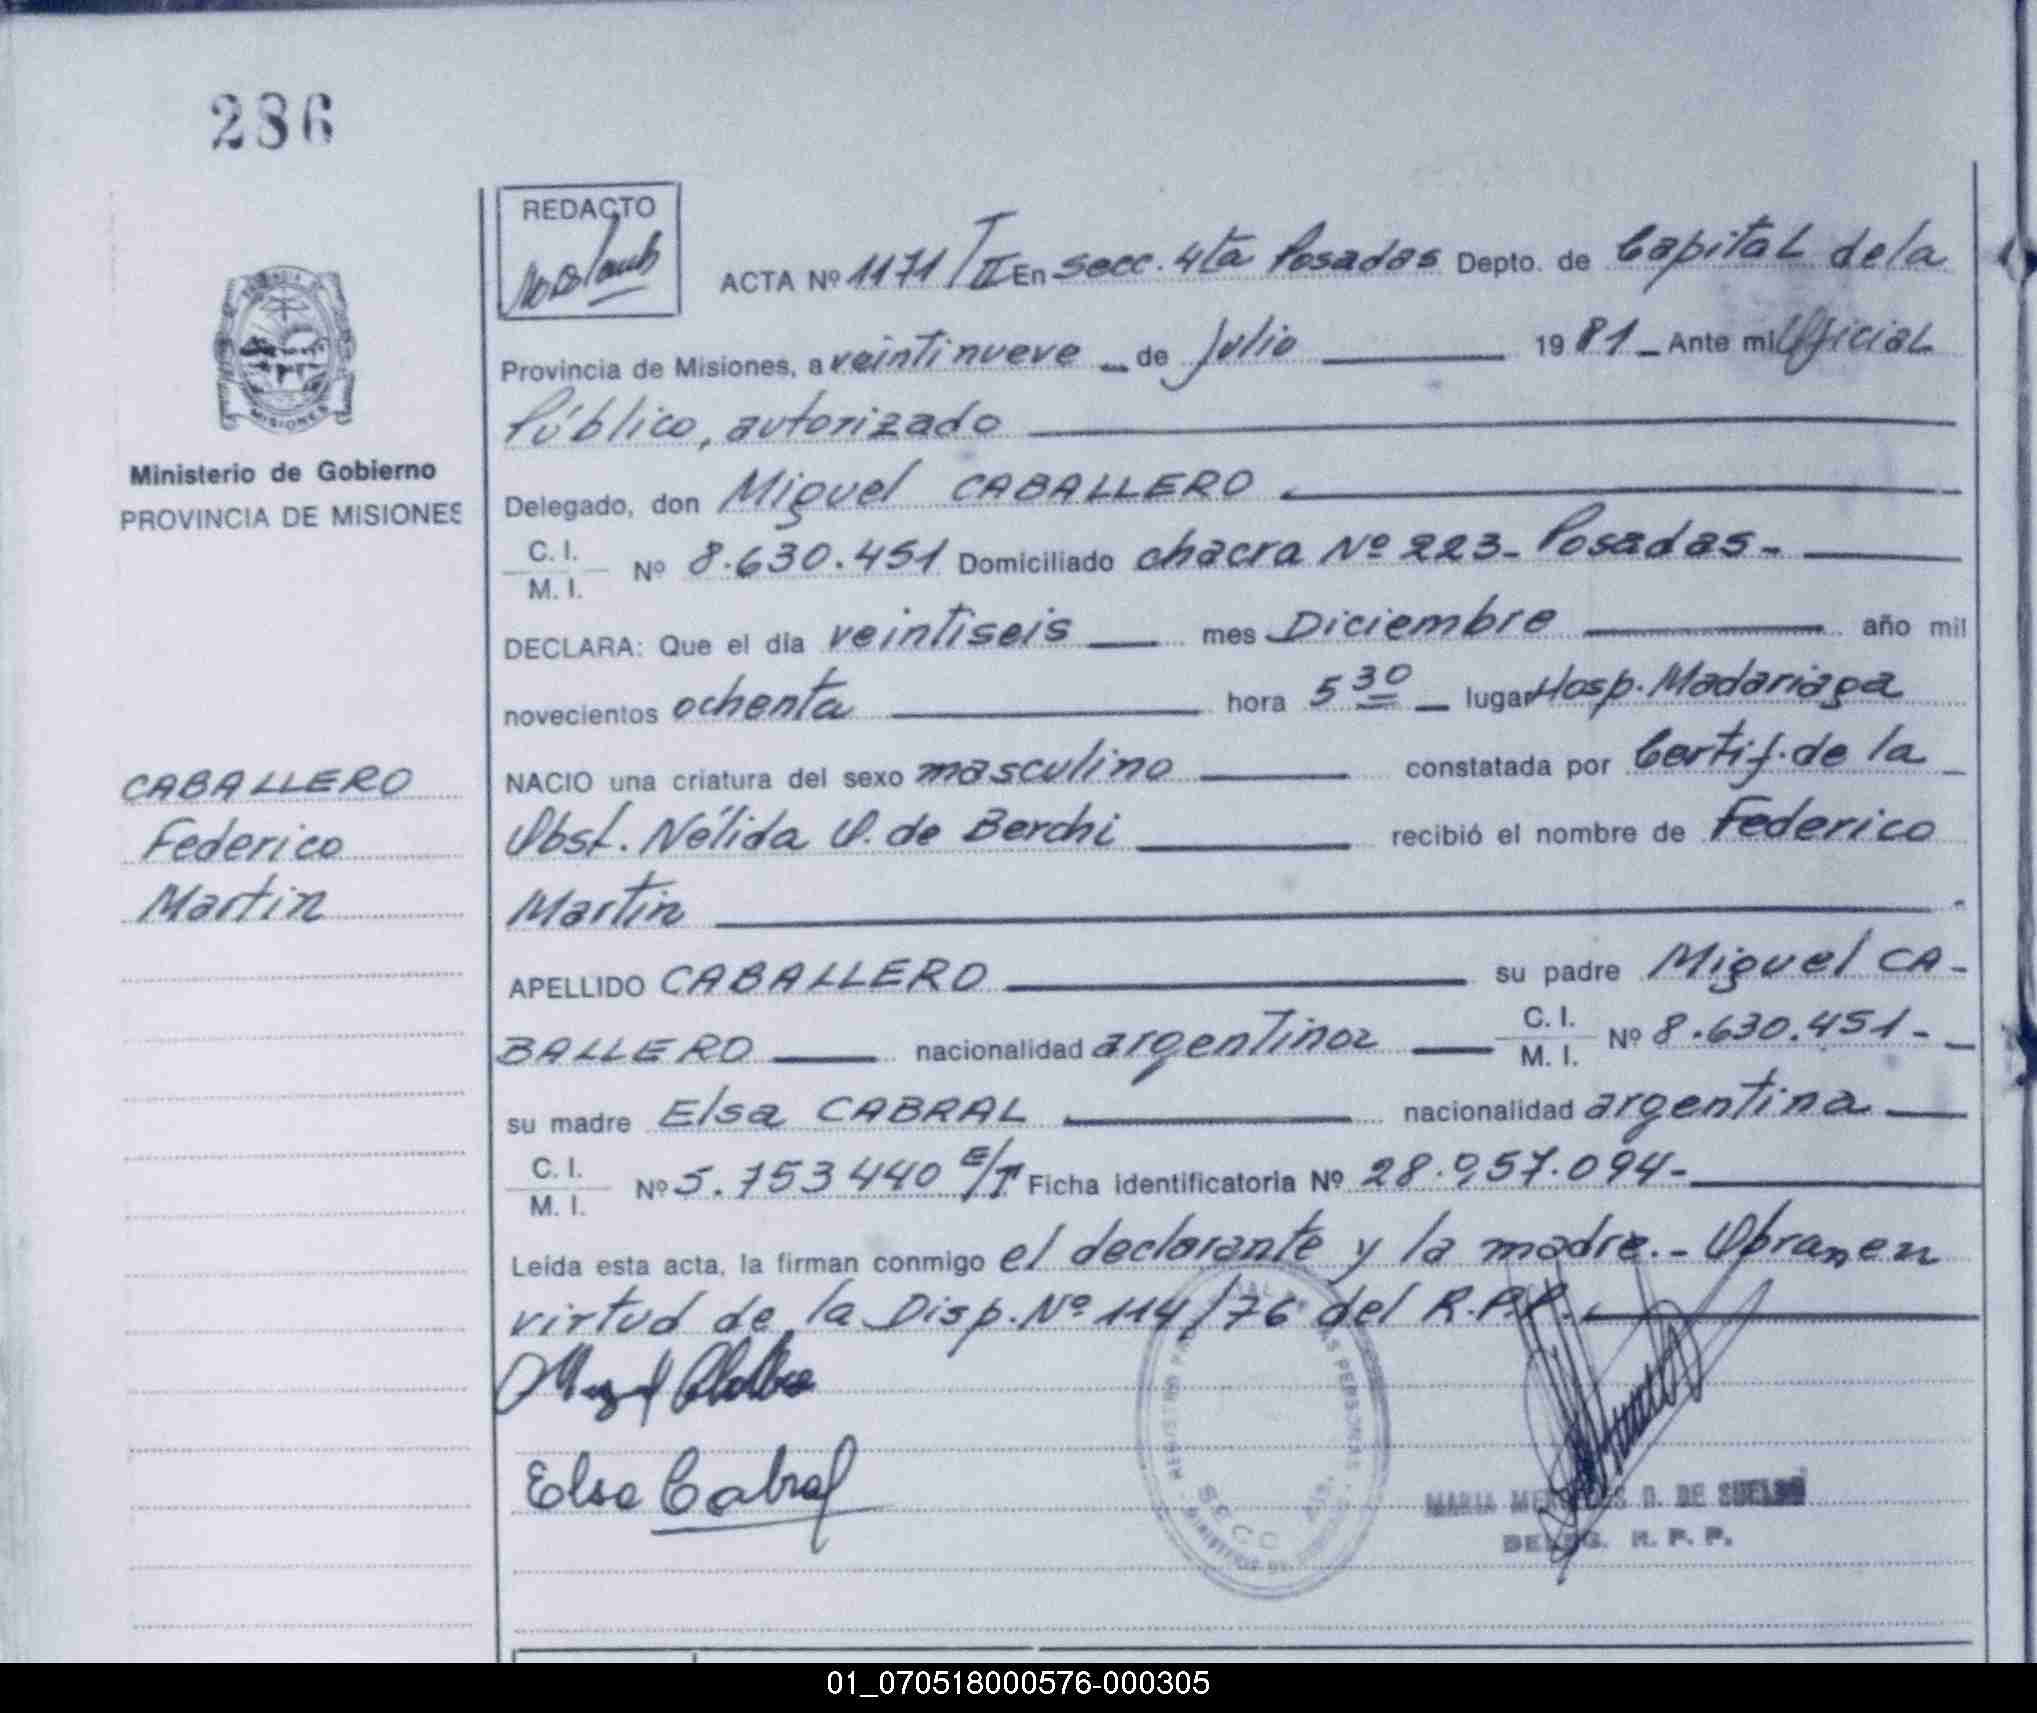 286
REDACTO
ACTA Nº 1171/T II En secc. 4ta Posadas Depto. de Capital de la
Provincia de Misiones, a veintinueve de Julio 1981 - Ante mi Oficial
Público, autorizado
Ministerio de Gobierno
PROVINCIA DE MISIONES
Delegado, don Miguel CABALLERO
C. I.
M. I. Nº 8.630.451 Domiciliado chacra Nº 223- Posadas-
DECLARA: Que el día veintiseis mes Diciembre año mil
novecientos ochenta hora 5 30 lugar Hosp. Madariaga
NACIO una criatura del sexo masculino constatada por Certif. de la
Obst. Nélida O. de Berchi recibió el nombre de Federico
Martin
CABALLERO
Federico
Martin
APELLIDO CABALLERO su padre Miguel CA-
BALLERO nacionalidad argentina C. I.
M. I. Nº 8.630.451-
su madre Elsa CABRAL nacionalidad argentina
C. I.
M. I. Nº 5.753440 E/T Ficha identificatoria Nº 28.957.094-
Leída esta acta, la firman conmigo el declarante y la madre.- Obran en
virtud de la Disp. Nº 114/76 del R.P.P.
Elsa Cabral
MARIA MERCEDES G. DE SUELDO
DELEG. R. P. P.
01_070518000576-000305